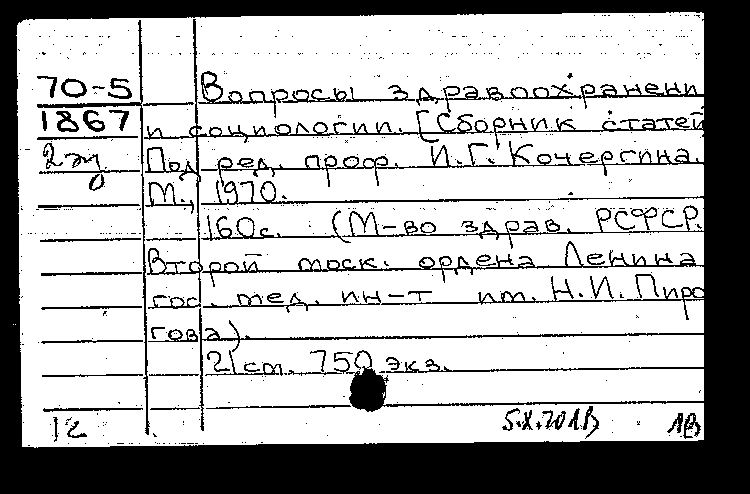 70-5 Вопросы здравоохранени
1867 и социологии. [Сборник статей
2 эк Под ред. проф. И.Г. Кочергина.
М., 1970.
160с. (М-во здрав. РСФСР.
Второй моск. ордена Ленина
гос. мед. ин-т им. Н.И. Пиро
гова).
21 ст. 750 экз.
12 5.X.70 1В 1В